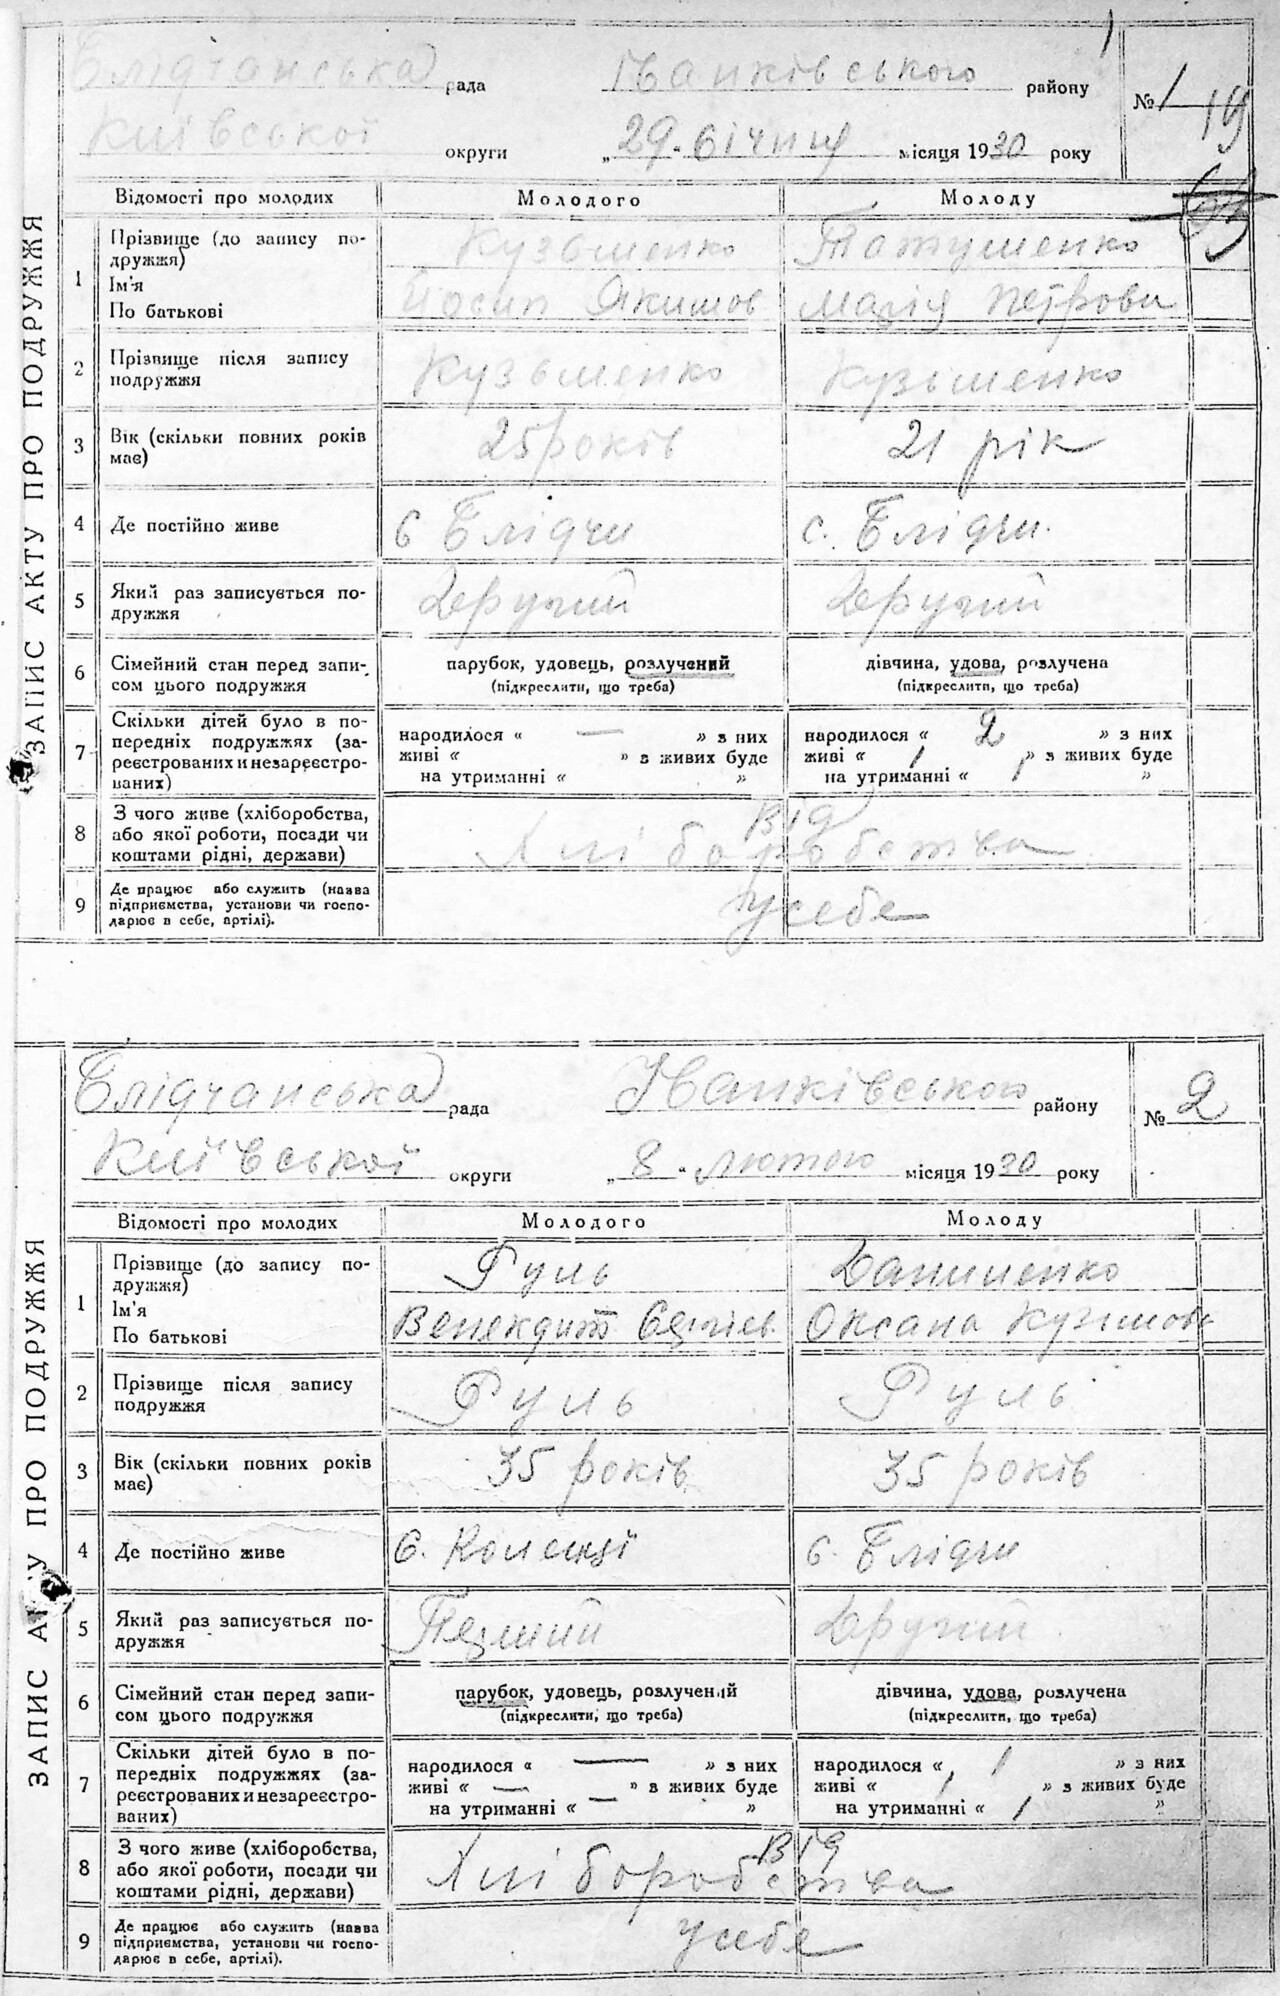 ЗАПИС АКТУ ПРО ПОДРУЖЖЯ
Блідчанська рада Іванківського району № 1
19
Київської округи „29" січня місяця 1930 року
Відомості про молодих Молодого Молоду
1 Прізвище (до запису подружжя) Кузьменко Татушенко
Ім'я По батькові Йосип Якимов Марія Петрови
2 Прізвище після запису подружжя Кузьменко Кузьменко
3 Вік (скільки повних років має) 25 років 21 рік
4 Де постійно живе с Блідчи с. Блідчи.
5 Який раз записується подружжя Другий Другий
6 Сімейний стан перед записом цього подружжя парубок, удовець, розлучений дівчина, удова, розлучена
(підкреслити, що треба) (підкреслити, що треба)
7 Скільки дітей було в попередніх подружжях (зареєстрованих и незареєстрованих) народилося « — » з них народилося « 2 » з них
живі « » з живих буде живі « 1 » з живих буде
на утриманні « » на утриманні « 1 »
8 З чого живе (хліборобства, або якої роботи, посади чи коштами рідні, держави) від
Хліборобства
9 Де працює або служить (назва підприємства, установи чи господарює в себе, артілі). у себе
ЗАПИС АКТУ ПРО ПОДРУЖЖЯ
Блідчанська рада Іванківського району № 2
Київської округи „8" лютого місяця 1930 року
Відомості про молодих Молодого Молоду
1 Прізвище (до запису подружжя) Руль Даниленко
Ім'я По батькові Венекдит Сергіев. Оксана Кузьмови
2 Прізвище після запису подружжя Руль Руль
3 Вік (скільки повних років має) 35 років 35 років
4 Де постійно живе с. Коленці с. Блідчи
5 Який раз записується подружжя Перший Другий
6 Сімейний стан перед записом цього подружжя парубок, удовець, розлучений дівчина, удова, розлучена
(підкреслити, що треба) (підкреслити, що треба)
7 Скільки дітей було в попередніх подружжях (зареєстрованих и незареєстрованих) народилося « — » з них народилося « 1 » з них
живі « — » в живих буде живі « 1 » з живих буде
на утриманні « — » на утриманні « 1 »
8 З чого живе (хліборобства, або якої роботи, посади чи коштами рідні, держави) від
Хліборобства
9 Де працює або служить (назва підприємства, установи чи господарює в себе, артілі). у себе